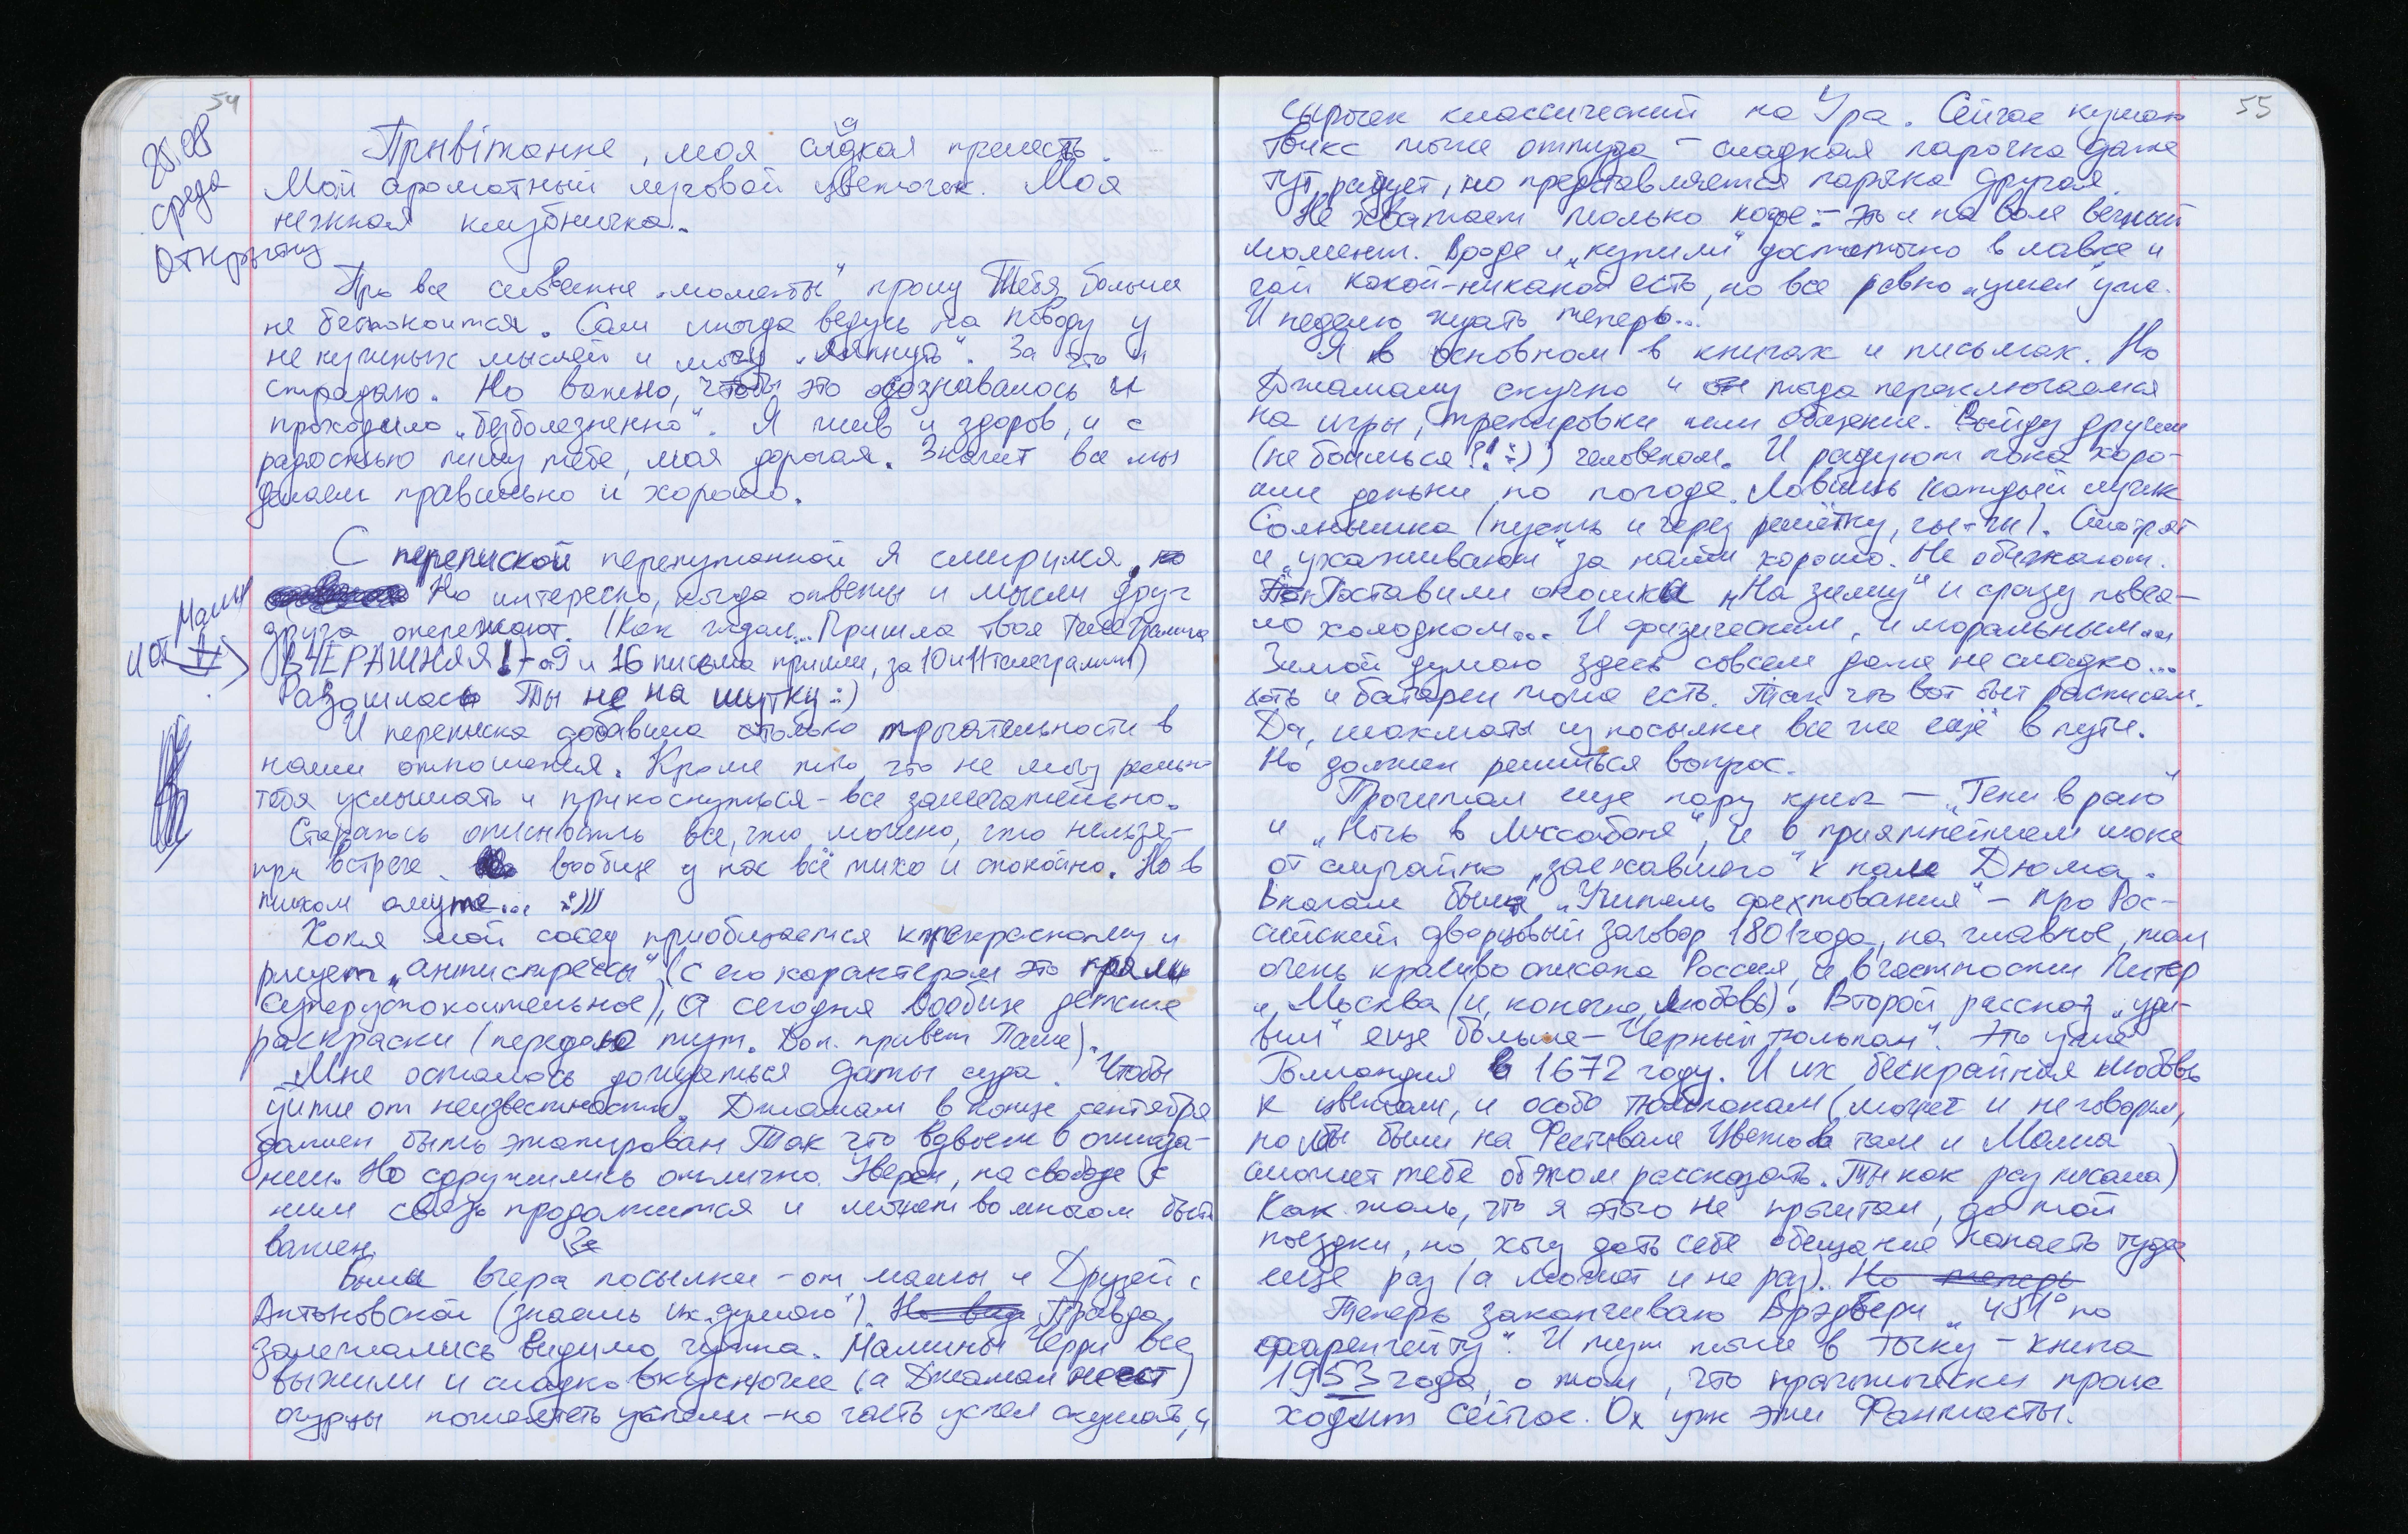 54
25.08
среда
Открытку
Привітанне, моя сладкая прелесть.
Мой ароматный луговой цветочек. Моя
нежная клубничка.
Про все словесные „моменты" прошу Тебя больше
не беспокоится. Сам иногда ведусь на поводу у
не нужных мыслей и могу „ляпнуть". За что и
страдаю. Но важно, чтобы это осознавалось и
проходило „безболезненно". Я жив и здоров, и с
радостью пишу тебе, моя дорогая. Значит все мы
делаем правильно и хорошо.
С перепиской перепутанной я смирился, но
Но интересно, когда ответы и мысли друг
друга опережают. (Как гадал... Пришла твоя телеграмма
и от Мамы
ВЧЕРАШНЯЯ! - а 9 и 16 письма пришли, за 10 и 11 телеграммы)
Разошлась Ты не на шутку :)
И переписка добавила столько трогательности в
наши отношения. Кроме того, что не могу реально
тебя услышать и прикоснуться - все замечательно.
Стараюсь описывать все, что можно, что нельзя -
при встрече. вообще у нас всё тихо и спокойно. Но в
тихом омуте... :)))
Хотя мой сосед приобщается к прекрасному и
рисует „антистрессы" (с его характером это прям
суперуспокоительное), а сегодня вообще детские
раскраски (передаю тут. Доп. привет Паше).
Мне осталось дождаться даты суда. Чтобы
уйти от неизвестности. Джамал в конце сентября
должен быть этапирован. Так что вдвоем в ожида-
нии. Но сдружились отлично. Уверен, на свободе с
ним связь продолжится и может во многом быть
важен.
Были вчера посылки - от мамы и Друзей с
Антоновской (знаешь их, думаю). Но вид Правда
залежались видимо чутка. Мамины Черри все
выжили и сладко вкуснючие (а Джамал не ест)
огурцы пожелтеть успели - но часть успел скушать, и
55
сырочек классический на Ура. Сейчас кушаю
Твикс тоже оттуда - сладкая парочка даже
тут радует, но представляется парочка другая.
Не хватает только кофе - это и на воле вечный
момент. Вроде и „купили" достаточно в лавке и
чай какой-никакой есть, но все равно „ушел" уже.
И неделю ждать теперь...
Я в основном в книгах и письмах. Но
Джамалу скучно и он тогда переключается
на игры, тренировки или общение. Выйду другим
(не боишься?! :)) человеком. И радуют пока хоро-
шие деньки по погоде. Ловишь каждый лучик
Солнышка (пусть и через решётку, гы-гы). Смотрят
и „ухаживают" за нами хорошо. Не обижают.
Поставили окошка „На зиму" и сразу повея-
ло холодком... И физическим, и моральным...
Зимой думаю здесь совсем даже не сладко...
хоть и батареи тоже есть. Так что вот быт расписал.
Да, шахматы из посылки все же ещё в пути.
Но должен решиться вопрос.
Прочитал еще пару книг - „Тени в раю"
и „Ночь в Лиссабоне", и в приятнейшем шоке
от случайно „заехавшего" к нам Дюма.
Вначале был „Учитель фехтования" - про Рос-
сийский дворцовый заговор 1801 года, но главное, там
очень красиво описана Россия, и в частности Питер
и Москва (и, конечно, любовь). Второй рассказ „уди-
вил" еще больше - „Черный тюльпан". Это уже
Голландия в 1672 году. И их бескрайняя любовь
к цветам, и особо тюльпанам (может и не говорил,
но мы были на Фестивале Цветов там и Мама
сможет тебе об этом рассказать. Ты как раз писала)
Как жаль, что я этого не прочитал до той
поездки, но хочу дать себе обещание попасть туда
еще раз (а может и не раз). Но теперь
Теперь заканчиваю Брэдбери „451° по
фаренгейту". И тут тоже в точку - книга
1953 года, о том, что практически проис
ходит сейчас. Ох уж эти Фантасты.